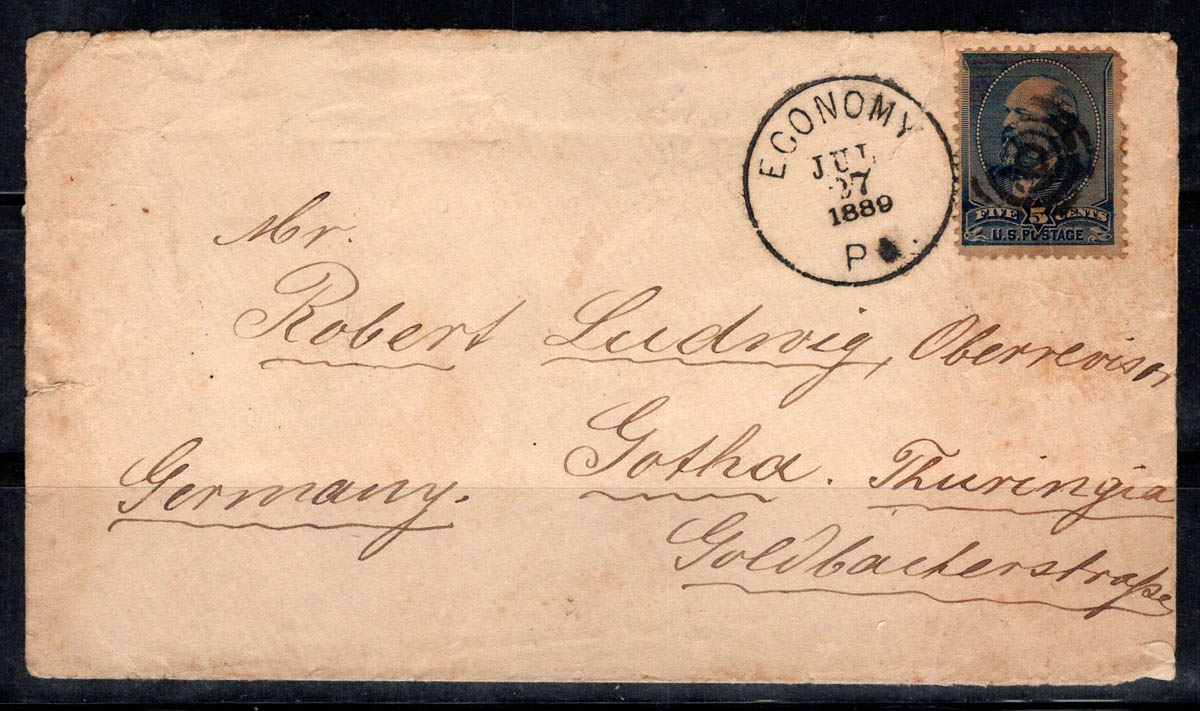 ECONOMY
JUL
27
1889
Pa.
FIVE 5 CENTS
U.S. POSTAGE
Mr.
Robert Ludwig, Oberrevisor
Gotha. Thuringia
Germany.
Goldbacherstraße